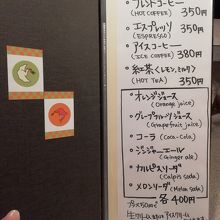 ブレンドコーヒー 350円
(HOT COFFEE)
・エスプレッソ 350円
(ESPRESSO)
・アイスコーヒー 380円
(ICE COFFEE)
・紅茶(レモン,ミルク)
(HOT TEA) 350円
・オレンジジュース
(Orange juice)
・グレープフルーツジュース
(Grapefruit juice)
・コーラ (Coca-Cola)
・ジンジャーエール
(Ginger ale)
・カルピスソーダ
(Calpis soda)
・メロンソーダ (Melon soda)
各400円
プラス50円で